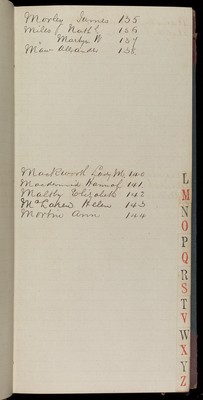 Morley James 135
Miles Nath 136
Martyn W 137
Maw Alexander 138
Lady M 140
Hannah 141
Maltby Elizabeth 142
McLaren Helen 143
Morton Ann 144
L
M
N
O
P
Q
R
S
T
V
W
X
Y
Z